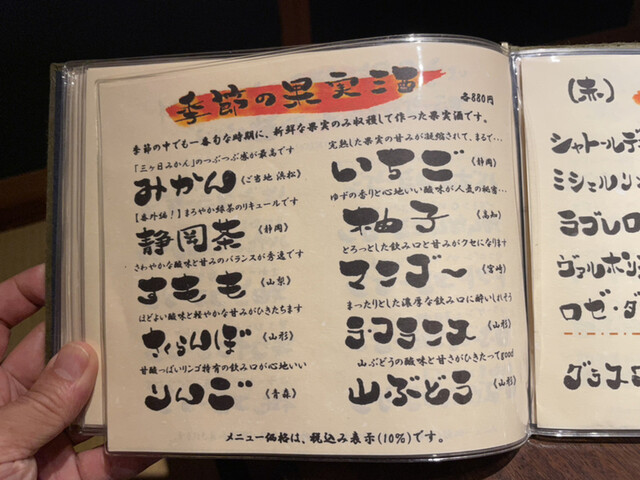 季節の果実酒
各880円
季節の中でも一番旬な時期に、新鮮な果実のみ収穫して作った果実酒です。
「三ヶ日みかん」のつぶつぶ感が最高です
みかん《ご当地 浜松》
【番外編！】まろやか緑茶のリキュールです
静岡茶《静岡》
さわやかな酸味と甘みのバランスが秀逸です
すもも《山梨》
ほどよい酸味と軽やかな甘みがひきたちます
さくらんぼ《山形》
甘酸っぱいリンゴ特有の飲み口が心地いい
りんご《青森》
完熟した果実の甘みが凝縮されて、まるで…
いちご《静岡》
ゆずの香りと心地いい酸味が人気の秘密…
柚子《高知》
とろっとした飲み口と甘みがクセになります
マンゴー《宮崎》
まったりとした濃厚な飲み口に酔いしれそう
ラ・フランス《山形》
山ぶどうの酸味と甘さがひきたってgood
山ぶどう《山形》
メニュー価格は、税込み表示(10%)です。
(赤)
シャトールデ
ミシェルリン
ラブレロ
ヴァルホリン
ロゼ・ダ
グラスワ